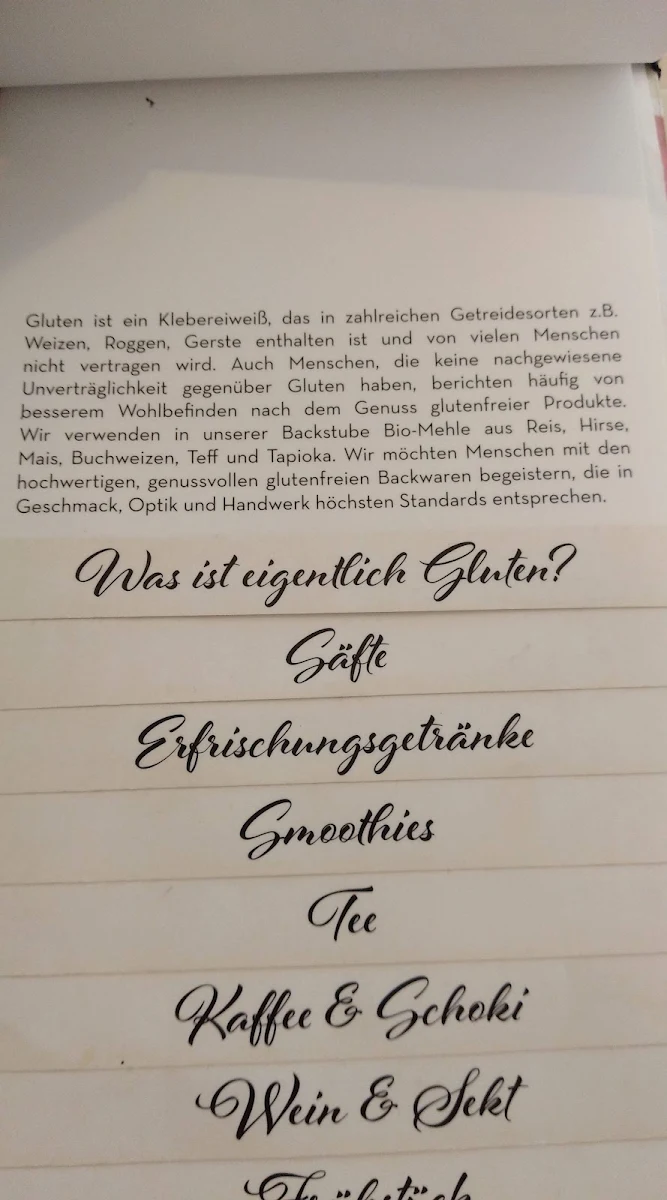 Gluten ist ein Klebereiweiß, das in zahlreichen Getreidesorten z.B.
Weizen, Roggen, Gerste enthalten ist und von vielen Menschen
nicht vertragen wird. Auch Menschen, die keine nachgewiesene
Unverträglichkeit gegenüber Gluten haben, berichten häufig von
besserem Wohlbefinden nach dem Genuss glutenfreier Produkte.
Wir verwenden in unserer Backstube Bio-Mehle aus Reis, Hirse,
Mais, Buchweizen, Teff und Tapioka. Wir möchten Menschen mit den
hochwertigen, genussvollen glutenfreien Backwaren begeistern, die in
Geschmack, Optik und Handwerk höchsten Standards entsprechen.
Was ist eigentlich Gluten?
Säfte
Erfrischungsgetränke
Smoothies
Tee
Kaffee & Schoki
Wein & Sekt
Frühstück